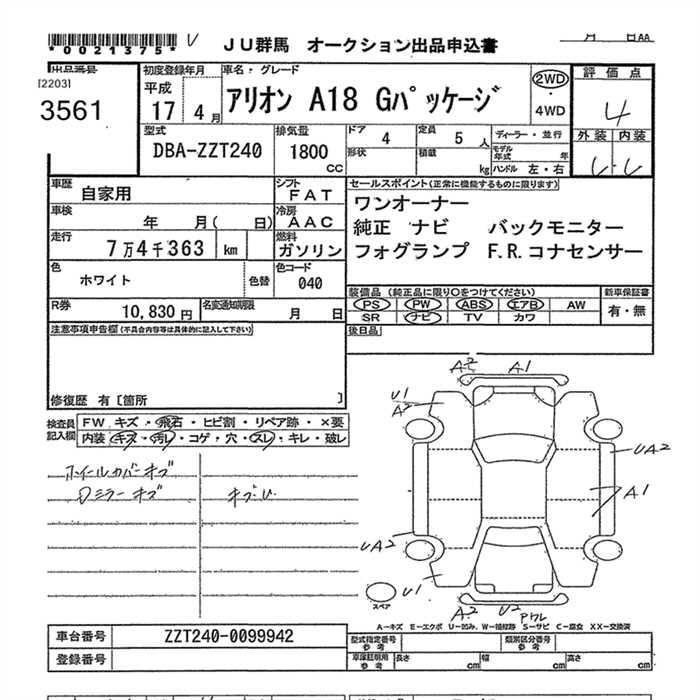 *0021375* U JU群馬 オークション出品申込書 月 日AA
出品番号 初度登録年月 車名・グレード 評価点
[2203] 平成 2WD
3561 17 4月 アリオン A18 Gパッケージ 4WD 4
型式 排気量 ドア 4 定員 5人 ディーラー・並行 外装 内装
DBA-ZZT240 1800 CC 形状 積載 kg モデル年式 年 ハンドル 左・右
車歴 自家用 シフト FAT セールスポイント(正常に機能するものに限ります)
車検 年 月( 日) 冷房 AAC ワンオーナー
走行 7万4千363 km 燃料 ガソリン 純正 ナビ バックモニター
フォグランプ F.R.コナセンサー
色 ホワイト 色替 色コード 040 装備品 (純正品に限り○をつけてください) 新車保証書
R券 10,830円 名変通知期限 月 日 PS PW ABS エアB AW 有・無
SR ナビ TV カワ
注意事項申告欄(不具合内容等は具体的に記入して下さい) 後日品
修復歴 有〔箇所 〕
検査員記入欄 FW キズ・飛石・ヒビ割・リペア跡・×要
内装・キズ・汚レ・コゲ・穴・スレ・キレ・破レ
ホイールカバーキズ
Dミラーキズ
A2 A1
U1
A2
UA2
A1
UA2
U1
A2 U2
スペア
A−キズ E−エクボ U−凹み、W−補修跡 S−サビ C−腐食 XX−交換済
車台番号 ZZT240-0099942 型式指定番号 参考 類別区分番号 参考
登録番号 車庫証明用 参考 長さ cm 幅 cm 高さ cm